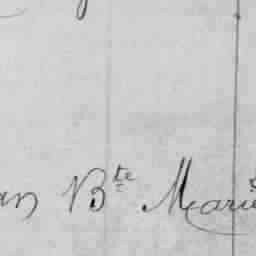 an Bte Marie